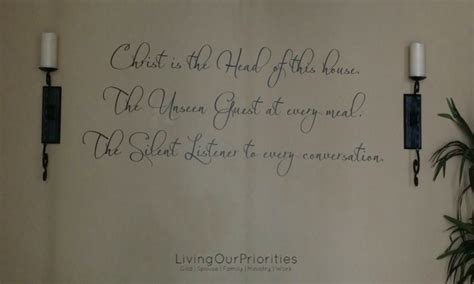 Christ is the Head of this house,
The Unseen Guest at every meal,
The Silent Listener to every conversation.
LivingOurPriorities
God | Spouse | Family | Ministry | Work